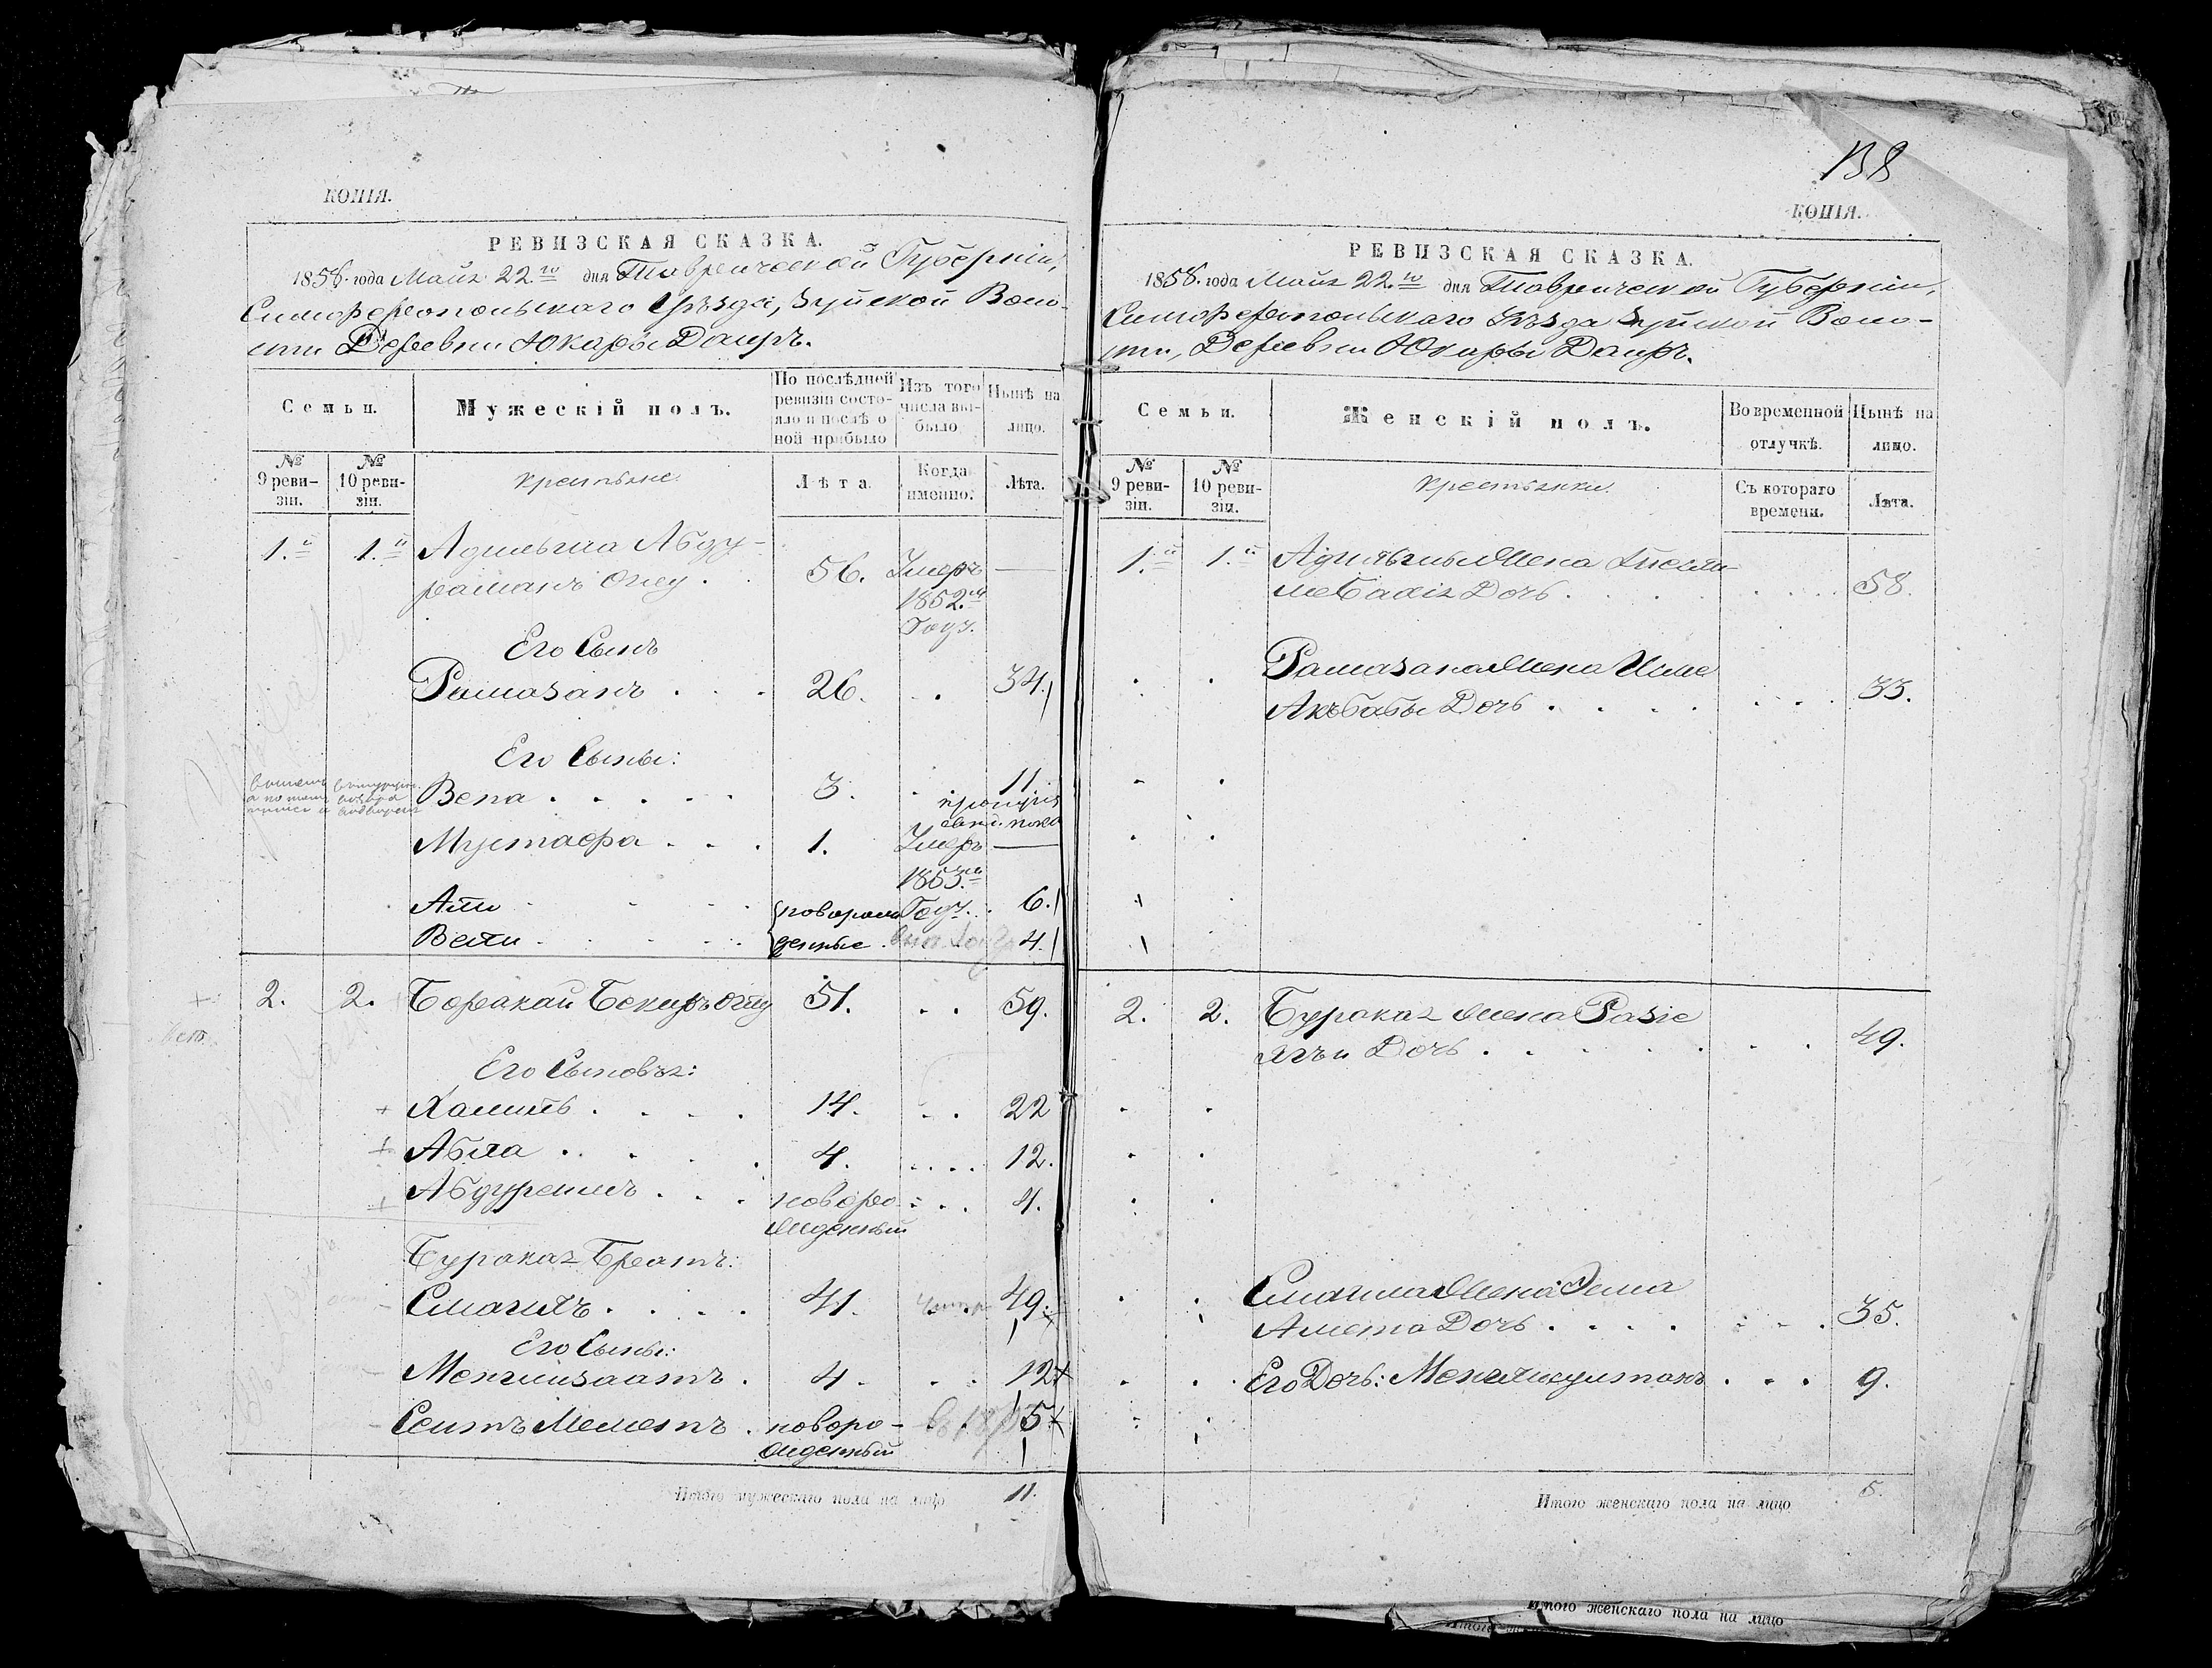 КОПІЯ.
РЕВИЗСКАЯ СКАЗКА.
1858. года Майя 22.го дня Таврической Губерніи,
Симферопольскаго Уѣзда, Зуйской Воло-
сти Деревни Юкары Даиръ.
Семьи.
Мужескій полъ.
По послѣдней ревизіи состояло и послѣ оной прибыло
Изъ того числа выбыло
Нынѣ на лицо.
№ 9 ревизіи.
№ 10 ревизіи.
Крестьяне.
Лѣта.
Когда именно.
Лѣта.
1.й 1.й Адильша Абду-
раманъ Оглу . 56. Умеръ —
1852.го
Году.
Его Сынъ
Рамазанъ . . . 26. . . 34.
Его Сыны:
Вепа . . . . . 3. . . 11.
Мустафа . . . 1. Умеръ —
1853.го
Али новорож Году. . 6.
Вели денные 4.
2. 2. Боракай Бекиръ Оглу 51. . . 59.
Его Сыновья:
Халиль . . . . 14. . . 22
Абла . . . . . 4. . . . . 12.
Абдурешитъ . . . новоро . . . 4.
жденный
Бурокая Братъ:
Смаилъ . . . . 41. 49.
Его Сыны:
Менглизаатъ . 4. . . 12
Сеитъ Меметъ . новоро- 5
жденный
Итого мужескаго пола на лицо 11.
138
КОПІЯ.
РЕВИЗСКАЯ СКАЗКА.
1858. года Майя 22.го дня Таврической Губерніи,
Симферопольскаго Уѣзда Зуйской Воло-
сти, Деревни Юкары Даиръ.
Семьи.
Женскій полъ.
Во временной отлучкѣ.
Нынѣ на лицо.
№ 9 ревизіи.
№ 10 ревизіи.
Крестьянки.
Съ котораго времени.
Лѣта.
1.й 1.й Жена
Дочь . . . . 58.
Рамазана Жена Уме
Акъбабы Дочь . . . . 33.
2. 2. Бурокая Жена Разіе
Дочь . . . . 49.
Смаила Жена Эма
Амета Дочь . . . . 35.
Его Дочь: Менглисултанъ . . . 9.
Итого женскаго пола на лицо 5.
Итого женскаго пола на лицо